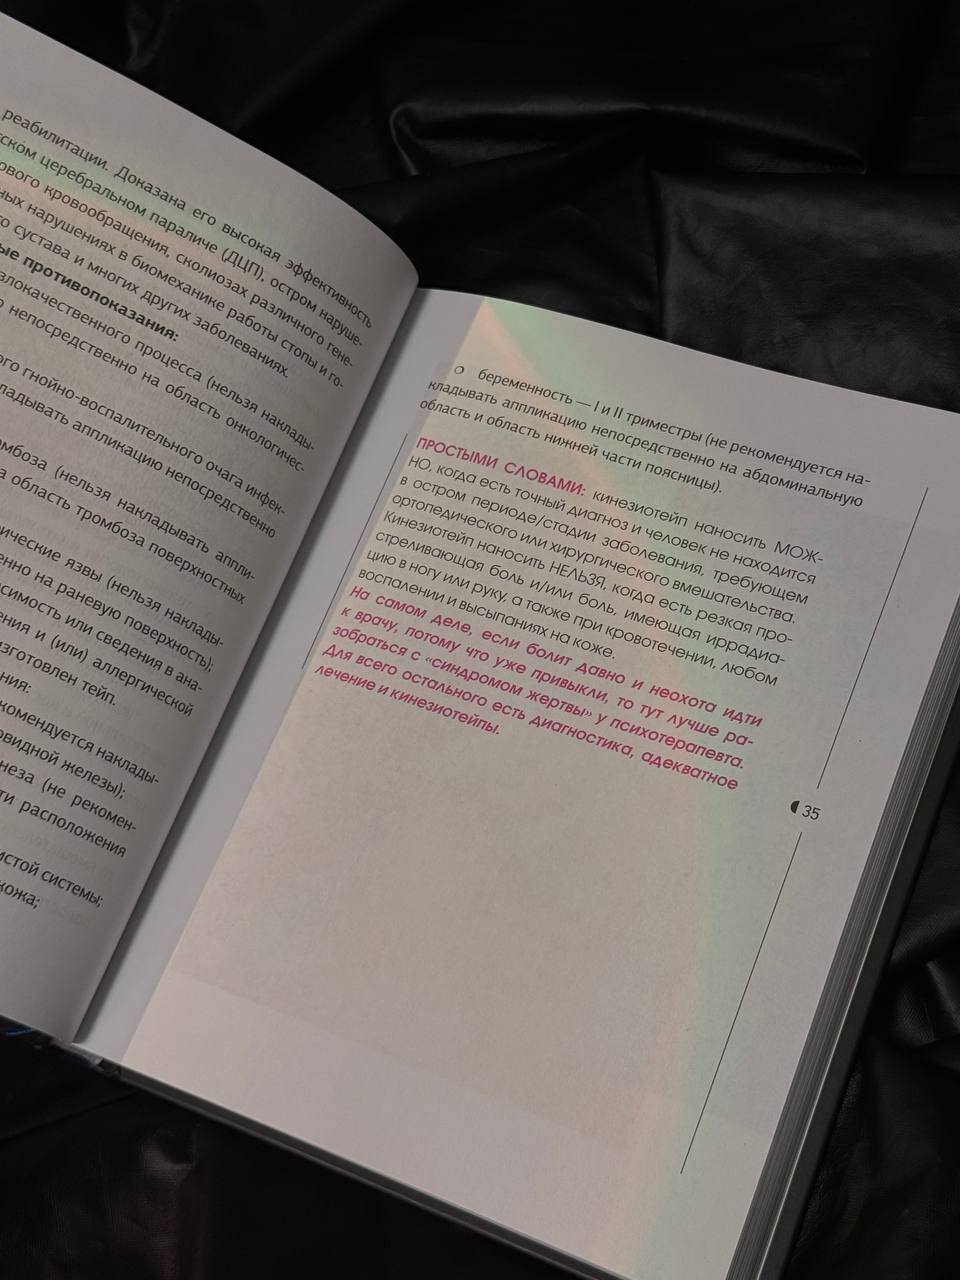 реабилитации. Доказана его высокая эффективность
церебральном параличе (ДЦП), остром наруше-
кровообращения, сколиозах различного гене-
нарушениях в биомеханике работы стопы и го-
сустава и многих других заболеваниях.
противопоказания:
злокачественного процесса (нельзя наклады-
непосредственно на область онкологичес-
гнойно-воспалительного очага инфек-
аппликацию непосредственно
(нельзя накладывать аппли-
область тромбоза поверхностных
язвы (нельзя наклады-
на раневую поверхность);
или сведения в ана-
и (или) аллергической
изготовлен тейп.
наклады-
железы);
(не рекомен-
расположения
системы;
кожа;
○ беременность — I и II триместры (не рекомендуется на-
кладывать аппликацию непосредственно на абдоминальную
область и область нижней части поясницы).
ПРОСТЫМИ СЛОВАМИ: кинезиотейп наносить МОЖ-
НО, когда есть точный диагноз и человек не находится
в остром периоде/стадии заболевания, требующем
ортопедического или хирургического вмешательства.
Кинезиотейп наносить НЕЛЬЗЯ, когда есть резкая про-
стреливающая боль и/или боль, имеющая иррадиа-
цию в ногу или руку, а также при кровотечении, любом
воспалении и высыпаниях на коже.
На самом деле, если болит давно и неохота идти
к врачу, потому что уже привыкли, то тут лучше ра-
зобраться с «синдромом жертвы» у психотерапевта.
Для всего остального есть диагностика, адекватное
лечение и кинезиотейпы.
35